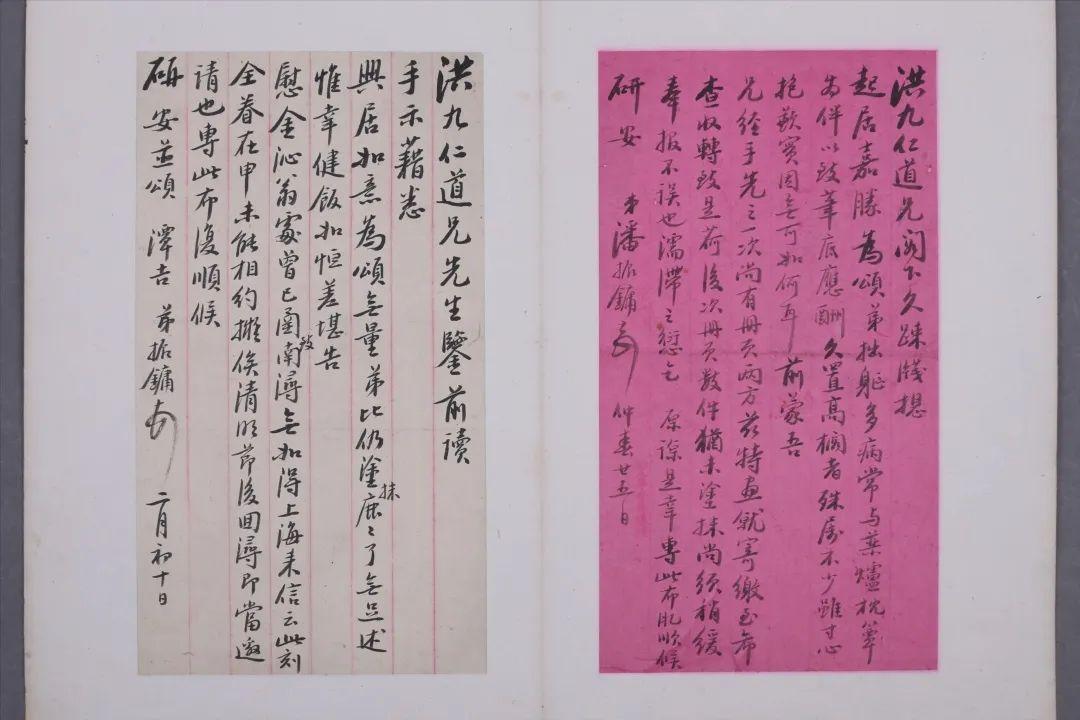 洪九仁道兄阁下久疎牋想
起居嘉勝為頌弟拙躯多病常与藥爐枕簟
為伴以致筆底應酬久置高擱者殊属不少雖寸心
抱歉實因無可如何耳前蒙吾
兄經手先之一次尚有冊頁两方茲特畫就寄繳至希
查收轉致是荷後次冊頁数件猶未塗抹尚須稍緩
奉报不误也濡滞之愆乞原諒是幸專此布肊順候
研安 弟潘振鏞 仲春廿五日
洪九仁道兄先生鑒前讀
手示藉悉
興居如意為頌無量弟比仍塗抹鹿鹿了無足述
惟幸健飯如恒差堪告
慰金沁翁處曾已函致南潯無如得上海来信云此刻
全眷在申未能相約擬俟清明節後囬潯即當邀
请也專此布復順候
研安並頌 潭吉 弟振鏞 二月初十日